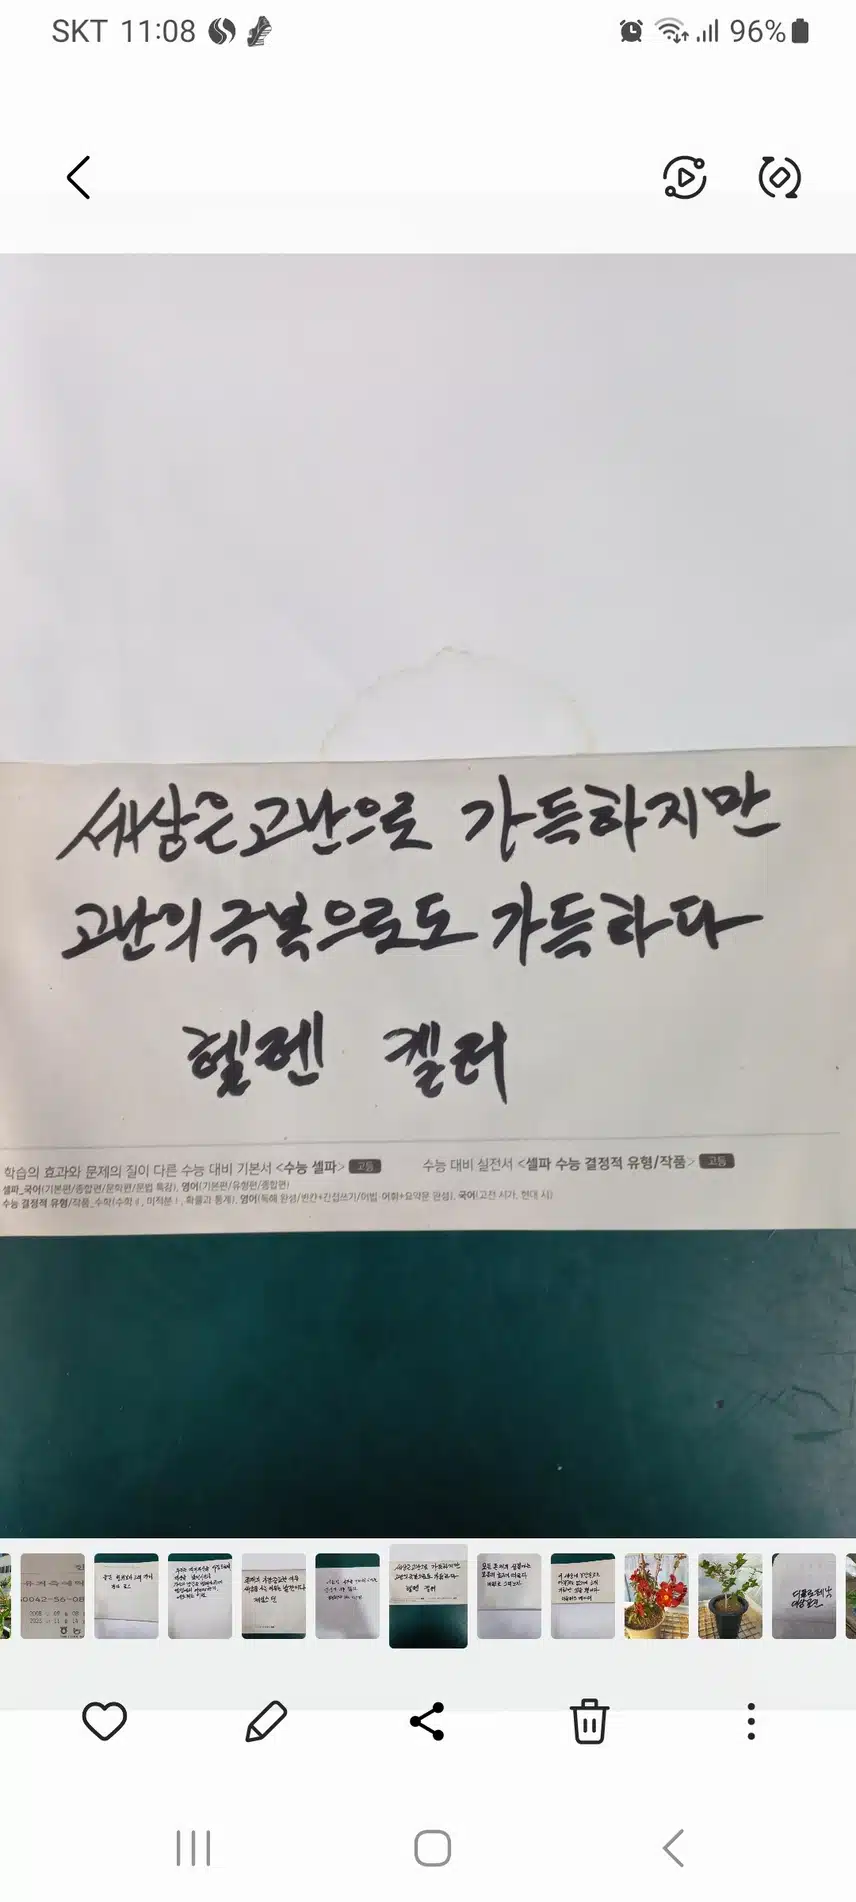 SKT 11:08 96%
세상은 고난으로 가득하지만
고난의 극복으로도 가득하다
헬렌 켈러
학습의 효과와 문제의 질이 다른 수능 대비 기본서 <수능 셀파> 고등 수능 대비 실전서 <셀파 수능 결정적 유형/작품> 고등
셀파_국어(기본편/종합편/문학편/문법 특강), 영어(기본편/유형편/종합편)
수능 결정적 유형/작품_수학(수학Ⅱ, 미적분Ⅰ, 확률과 통계), 영어(독해 완성/빈칸+간접쓰기/어법·어휘+요약문 완성), 국어(고전 시가, 현대 시)